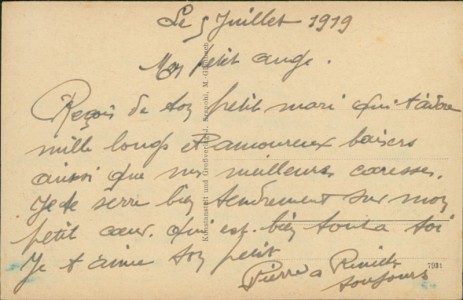 Le 5 Juillet 1919
Mon petit ange.
Reçois de ton petit mari qui t'adore
mille longs et amoureux baisers
ainsi que mes meilleurs caresses.
Je te serre bien tendrement sur mon
petit cœur. qui est bien tout a toi
Je t aime ton petit
Pierre a
toujours
Kunstanstalt und Großvertrieb J. M.-Gladbach
7981